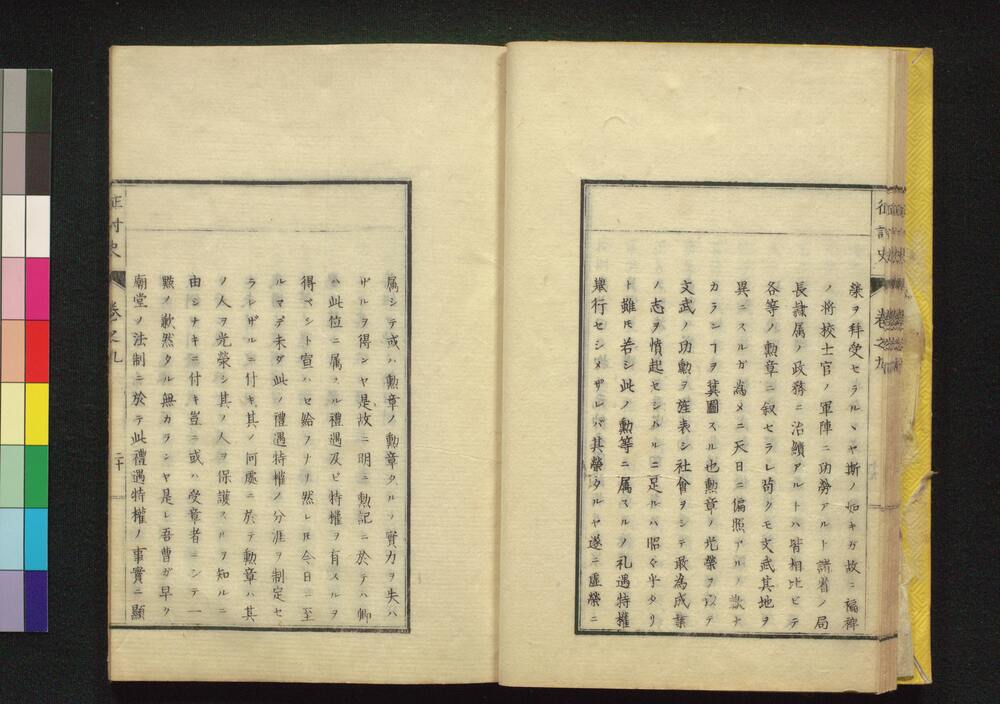 榮ヲ拜受セラルヽヤ斯ノ如キガ故ニ褊裨
ノ将校士官ノ軍陣ニ功勞アルト諸省ノ局
長隷属ノ政務ニ治績アルトハ皆相比ビテ
各等ノ勲章ニ叙セラレ苟クモ文武其地ヲ
異ニスルガ為メニ天日ニ偏照アルノ歎ナ
カランヿヲ冀圖スル也勲章ノ光榮ヲ以テ
文武ノ功勲ヲ旌表シ社會ヲシテ敢為成業
ノ志ヲ憤起セシムルニ足ルハ昭々乎タリ
ト雖𪜈若シ此ノ勲等ニ属スルノ礼遇特權ニ
擧行セシメザレバ其榮タルヤ遂ニ虚榮ニ
征討史
卷之九
属シテ或ハ勲章ノ勲章タルノ實力ヲ失ハ
ザルヲ得ンヤ是故ニ明ニ勲記ニ於テハ卿
ハ此位ニ属スル禮遇及ビ特權ヲ有スルヲ
得ベシト宣ハセ給フナリ然レ𪜈今日ニ至
ルマデ未ダ此ノ禮遇特權ノ分涯ヲ制定セ
ラレザルニ付キ其ノ何處ニ於テ勲章ハ其
ノ人ヲ光榮シ其ノ人ヲ保護スルヲ知ルニ
由シナキニ付キ豈ニ或ハ受章者ニシテ一
點ノ歉然タル無カラシヤ是レ吾曹ガ早ク
廟堂ノ法制ニ於テ此禮遇特權ノ事實ニ顯
征討史
卷之九
二十